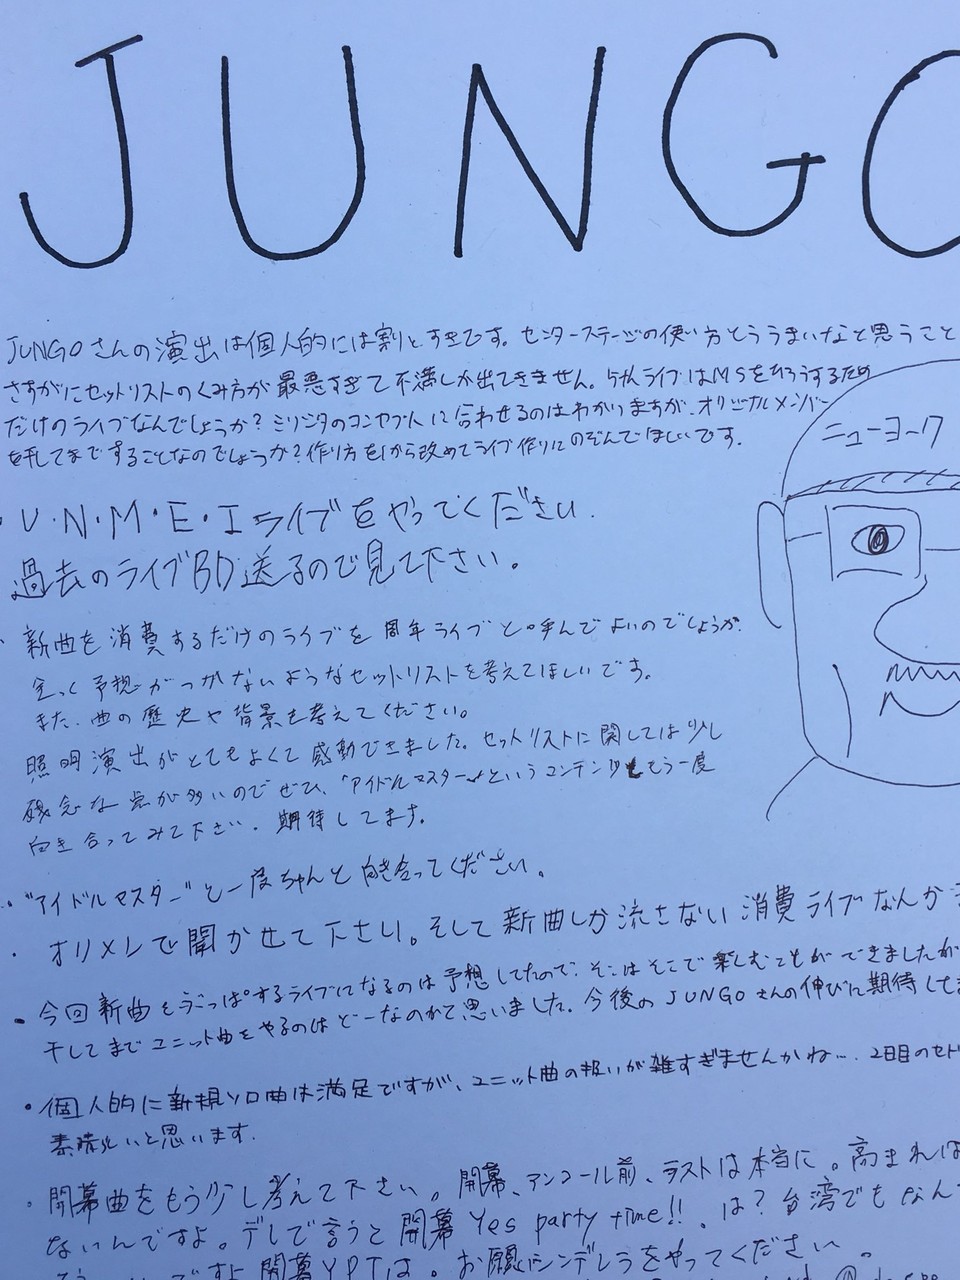 JUNGO
JUNGOさんの演出は個人的には割とすきです。センターステージの使い方とうまいなと思うこと
さすがにセットリストのくみ方が最悪すぎて不満しか出てきません。ライブはMSをひろうするため
だけのライブなんでしょうか?ミリシタのコンセプトに合わせるのはわかりますが、オリジナルメンバー
を干してまですることなのでしょうか?作り方を1から改めてライブ作りにのぞんでほしいです。
ニューヨーク
・U・N・M・E・Iライブをやってください.
過去のライブBD送るので見て下さい。
・新曲を消費するだけのライブを周年ライブと呼んでよいのでしょうか.
全く予想がつかないようなセットリストを考えてほしいです。
また、曲の歴史や背景を考えてください。
照明演出がとてもよくて感動できました。セットリストに関しては少し
残念な点が多いのでぜひ、「アイドルマスター」というコンテンツともう一度
向き合ってみて下さい。期待してます。
・"アイドルマスター"と一度ちゃんと向き合ってください。
・オリメンで聞かせて下さい。そして新曲しか流さない消費ライブなんか
・今回新曲をいっぱいするライブになるのは予想してたので、そこはそこで楽しむことができましたが
干してまでユニット曲をやるのはどーなのかで思いました。今後のJUNGOさんの伸びに期待してま
・個人的に新規ソロ曲は満足ですが、ユニット曲の扱いが雑すぎませんかね…. 2日目のセト
素晴しいと思います.
・開幕曲をもう少し考えて下さい。開幕、アンコール前、ラストは本当に。高まれば
ないんですよ。デレで言うと開幕Yes party time!!。は?台湾でもなん
ですよ開幕YPTは。お願いシンデレラをやってください。